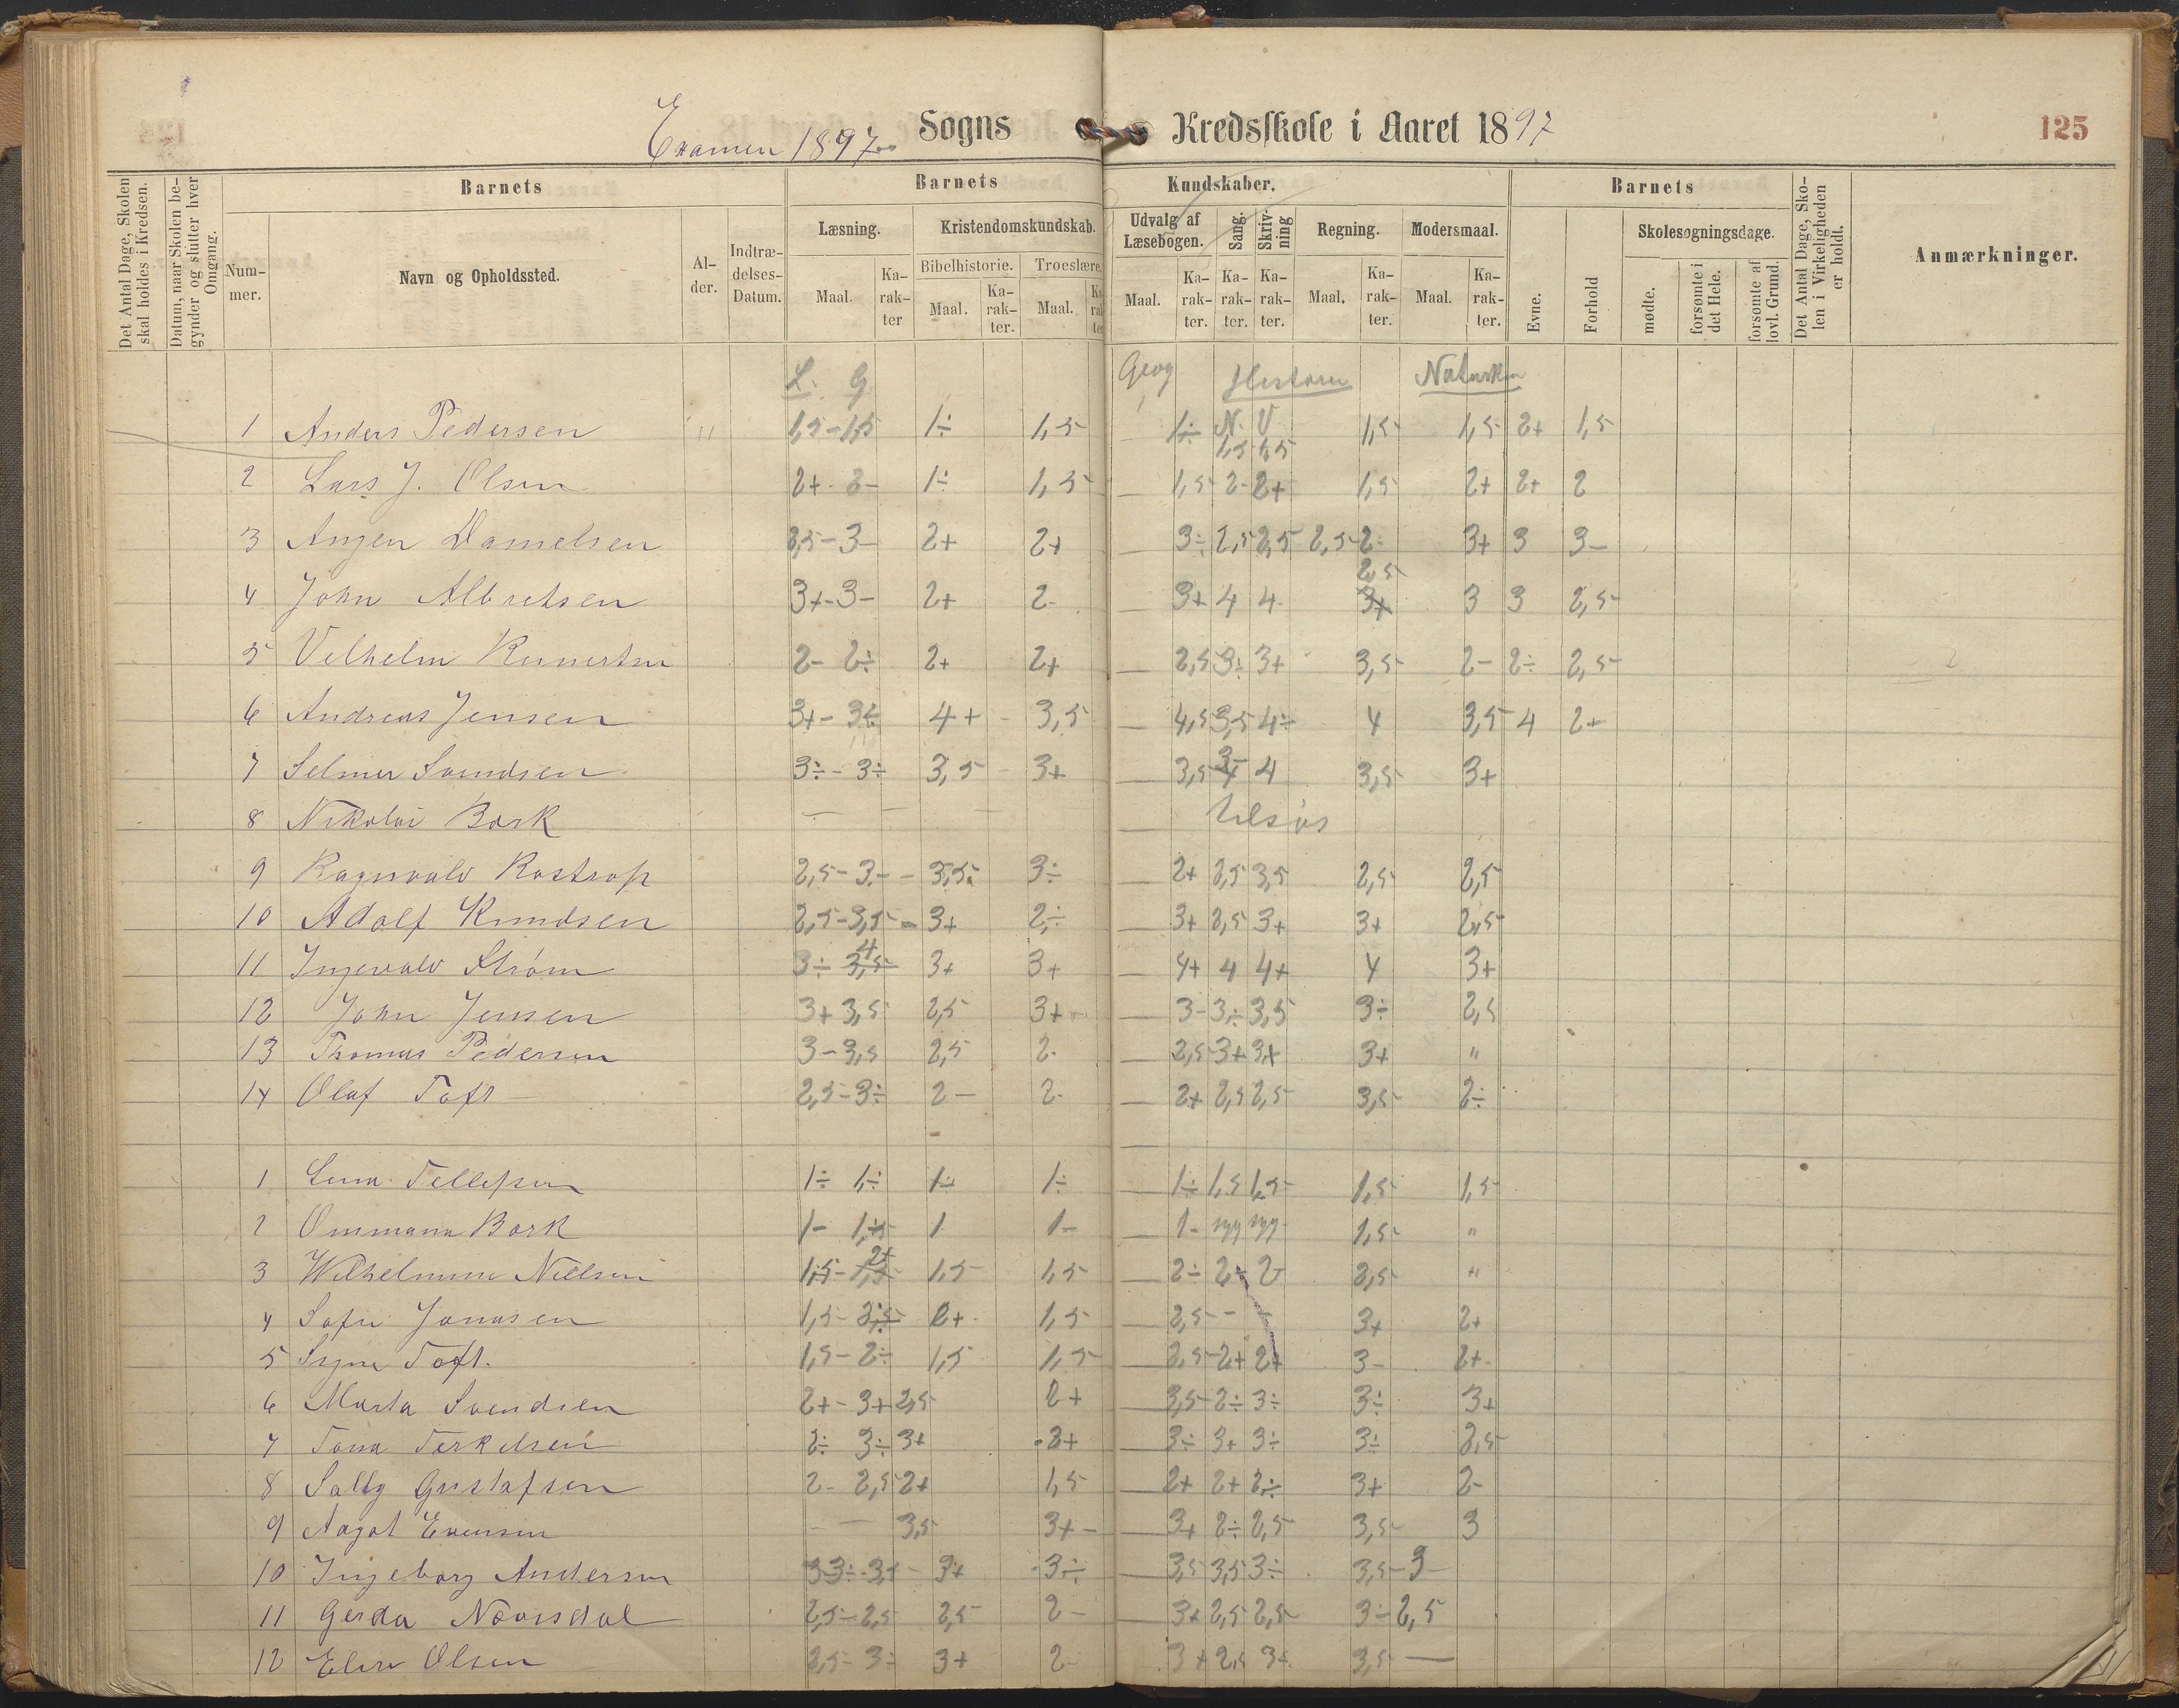 Examen 1897 Sogns Kredsskole i Aaret 1897 125
Det Antal Dage, Skolen skal holdes i Kredsen.
Datum, naar Skolen begynder og slutter hver Omgang.
Barnets Barnets Kundskaber. Barnets
Nummer. Navn og Opholdssted. Alder. Indtrædelses-Datum.
Læsning. Kristendomskundskab. Udvalg af Læsebogen. Sang. Skrivning Regning. Modersmaal.
Bibelhistorie. Troeslære.
Maal. Karakter Maal. Karakter. Maal. Karakter Maal. Karakter. Karakter. Karakter. Maal. Karakter. Maal. Karakter.
Evne. Forhold Skolesøgningsdage. mødte. forsømte i det Hele. forsømte af lovl. Grund.
Det Antal Dage, Skolen i Virkeligheden er holdt.
Anmærkninger.
L. G Geog Historie Naturk
1 Anders Pedersen 1,5-1,5 1÷ 1,5 1÷ N. V 1,5 1,5 2+ 1,5
1,5 1,5
2 Lars J. Olsen 2+ 2- 1÷ 1,5 1,5 2- 2+ 1,5 2+ 2+ 2
3 Angen Danielsen 2,5-3- 2+ 2+ 3÷ 2,5 2,5 2,5-2- 3+ 3 3-
2,5
4 John Albretsen 3+-3- 2+ 2- 3+ 4 4 3+ 3 3 2,5
5 Vilhelm 2- 2÷ 2+ 2+ 2,5 3÷ 3+ 3,5 2- 2÷ 2,5
6 Andreas Jensen 3+-3÷ 4+ 3,5 4,5 3,5 4÷ 4 3,5 4 2+
7 Selmer Svendsen 3÷-3÷ 3,5 3+ 3,5 4 4 3,5 3+
8 Nikolai Bork — — — tilsjøs
9 Ragnvald Rostrop 2,5-3- 3,5 3÷ 2+ 2,5 3,5 2,5 2,5
10 Adolf Knudsen 2,5-3,5 3+ 2÷ 3+ 2,5 3+ 3+ 2,5
11 Ingevald Strøm 3÷ 3,5 4 3+ 3+ 4+ 4 4+ 4 3+
12 John Jensen 3+ 3,5 2,5 3+ 3- 3÷ 3,5 3÷ 2,5
13 Thomas Pedersen 3-3,5 2,5 2- 2,5 3+ 3+ 3+ "
14 Olaf Toft 2,5-3÷ 2- 2- 2+ 2,5 2,5 3,5 2÷
1 Lina Tellefsen 1÷ 1÷ 1÷ 1÷ 1÷ 1,5 1,5 1,5 1,5
2 Ommana Bork 1- 1÷ 1 1- 1- syg syg 1,5 "
3 Wilhelmine Nielsen 1,5-1,5 2+ 1,5 1,5 2÷ 2÷ 2- 2,5 "
4 Sofie Jonasen 1,5 2+ 1,5 2,5 - - 3+ 2+
5 Signe Toft. 1,5-2÷ 1,5 1,5 2,5 2+ 2+ 3- 2+
6 Marta Svendsen 2+-3+ 2,5 2+ 3,5 2÷ 3÷ 3÷ 3+
7 Tona Terkelsen 2÷ 3÷ 3+ 3+ 3÷ 3+ 3÷ 3÷ 2,5
8 Sally Gustafsen 2- 2,5 2+ 1,5 2+ 2+ 2÷ 3+ 2-
9 Aagot Evensen — 3,5 3+- 3+ 2÷ 2,5 3,5 3
10 Ingeborg Andersen 3+ 3÷ 3,5 3,5 3÷ 3,5-3-
11 Gerda Novisdal 2,5-2,5 2,5 2- 3+ 2,5 2,5 3÷ 2,5
12 Olsen 2,5-3÷ 3+ 2- 3+ 2,5 3+ 3,5 —